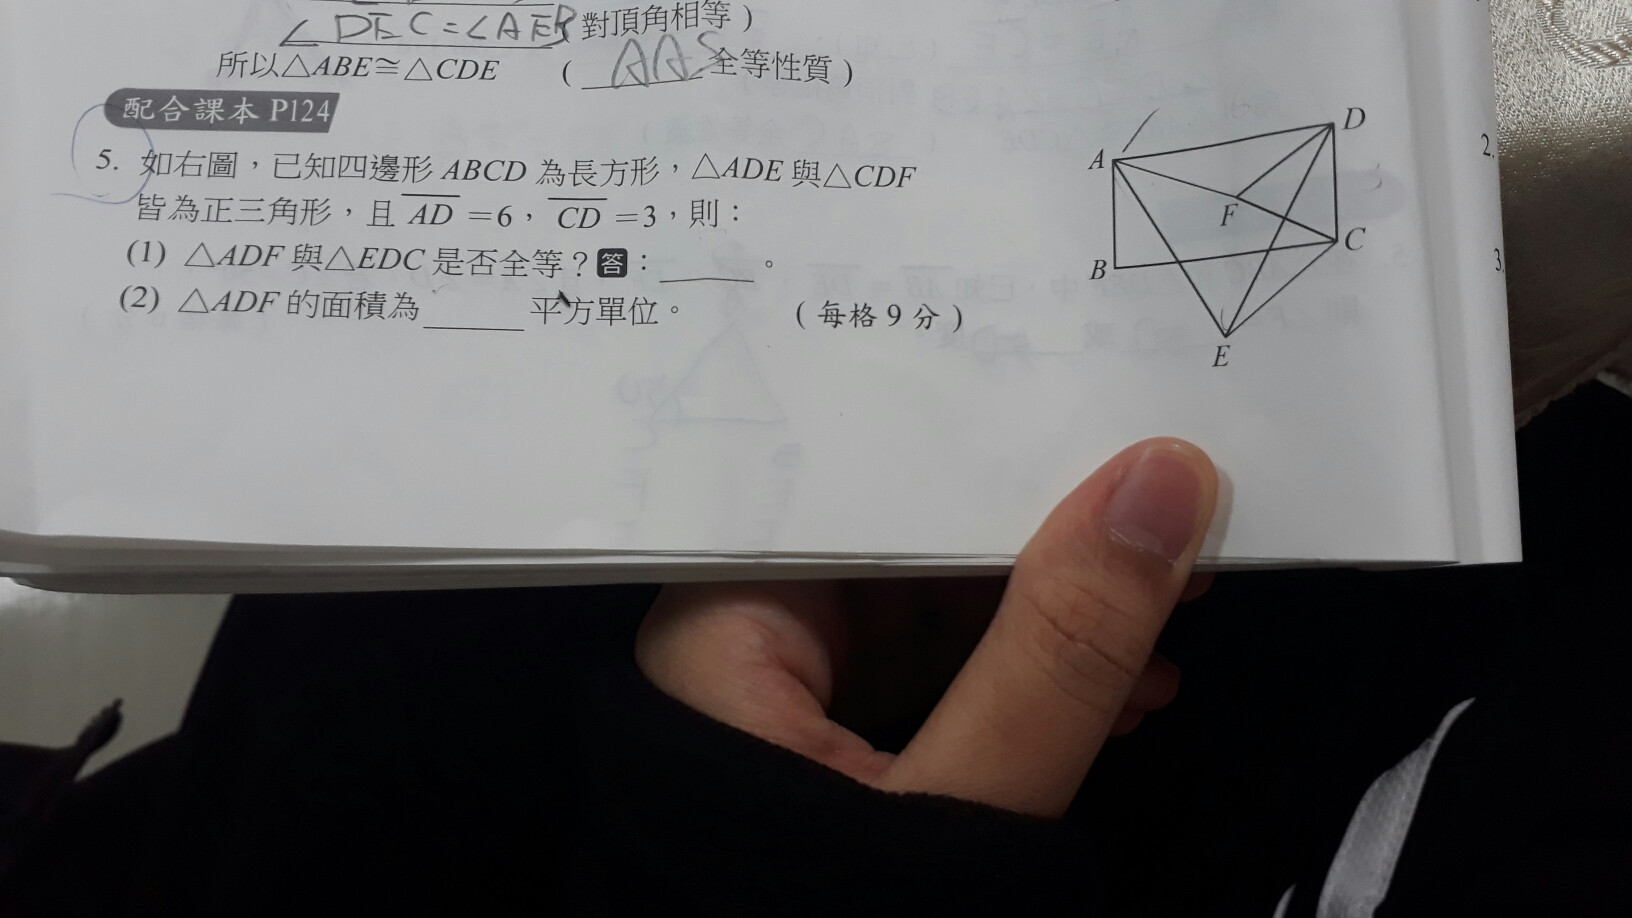 ∠DEC=∠AEB 對頂角相等)
所以△ABE≅△CDE (AAS 全等性質)
配合課本 P124
5. 如右圖，已知四邊形 ABCD 為長方形，△ADE 與△CDF
皆為正三角形，且 AD =6， CD =3，則：
(1) △ADF 與△EDC 是否全等？答：______。
(2) △ADF 的面積為______平方單位。 (每格 9 分)
A
D
F
B
C
E
2.
3.